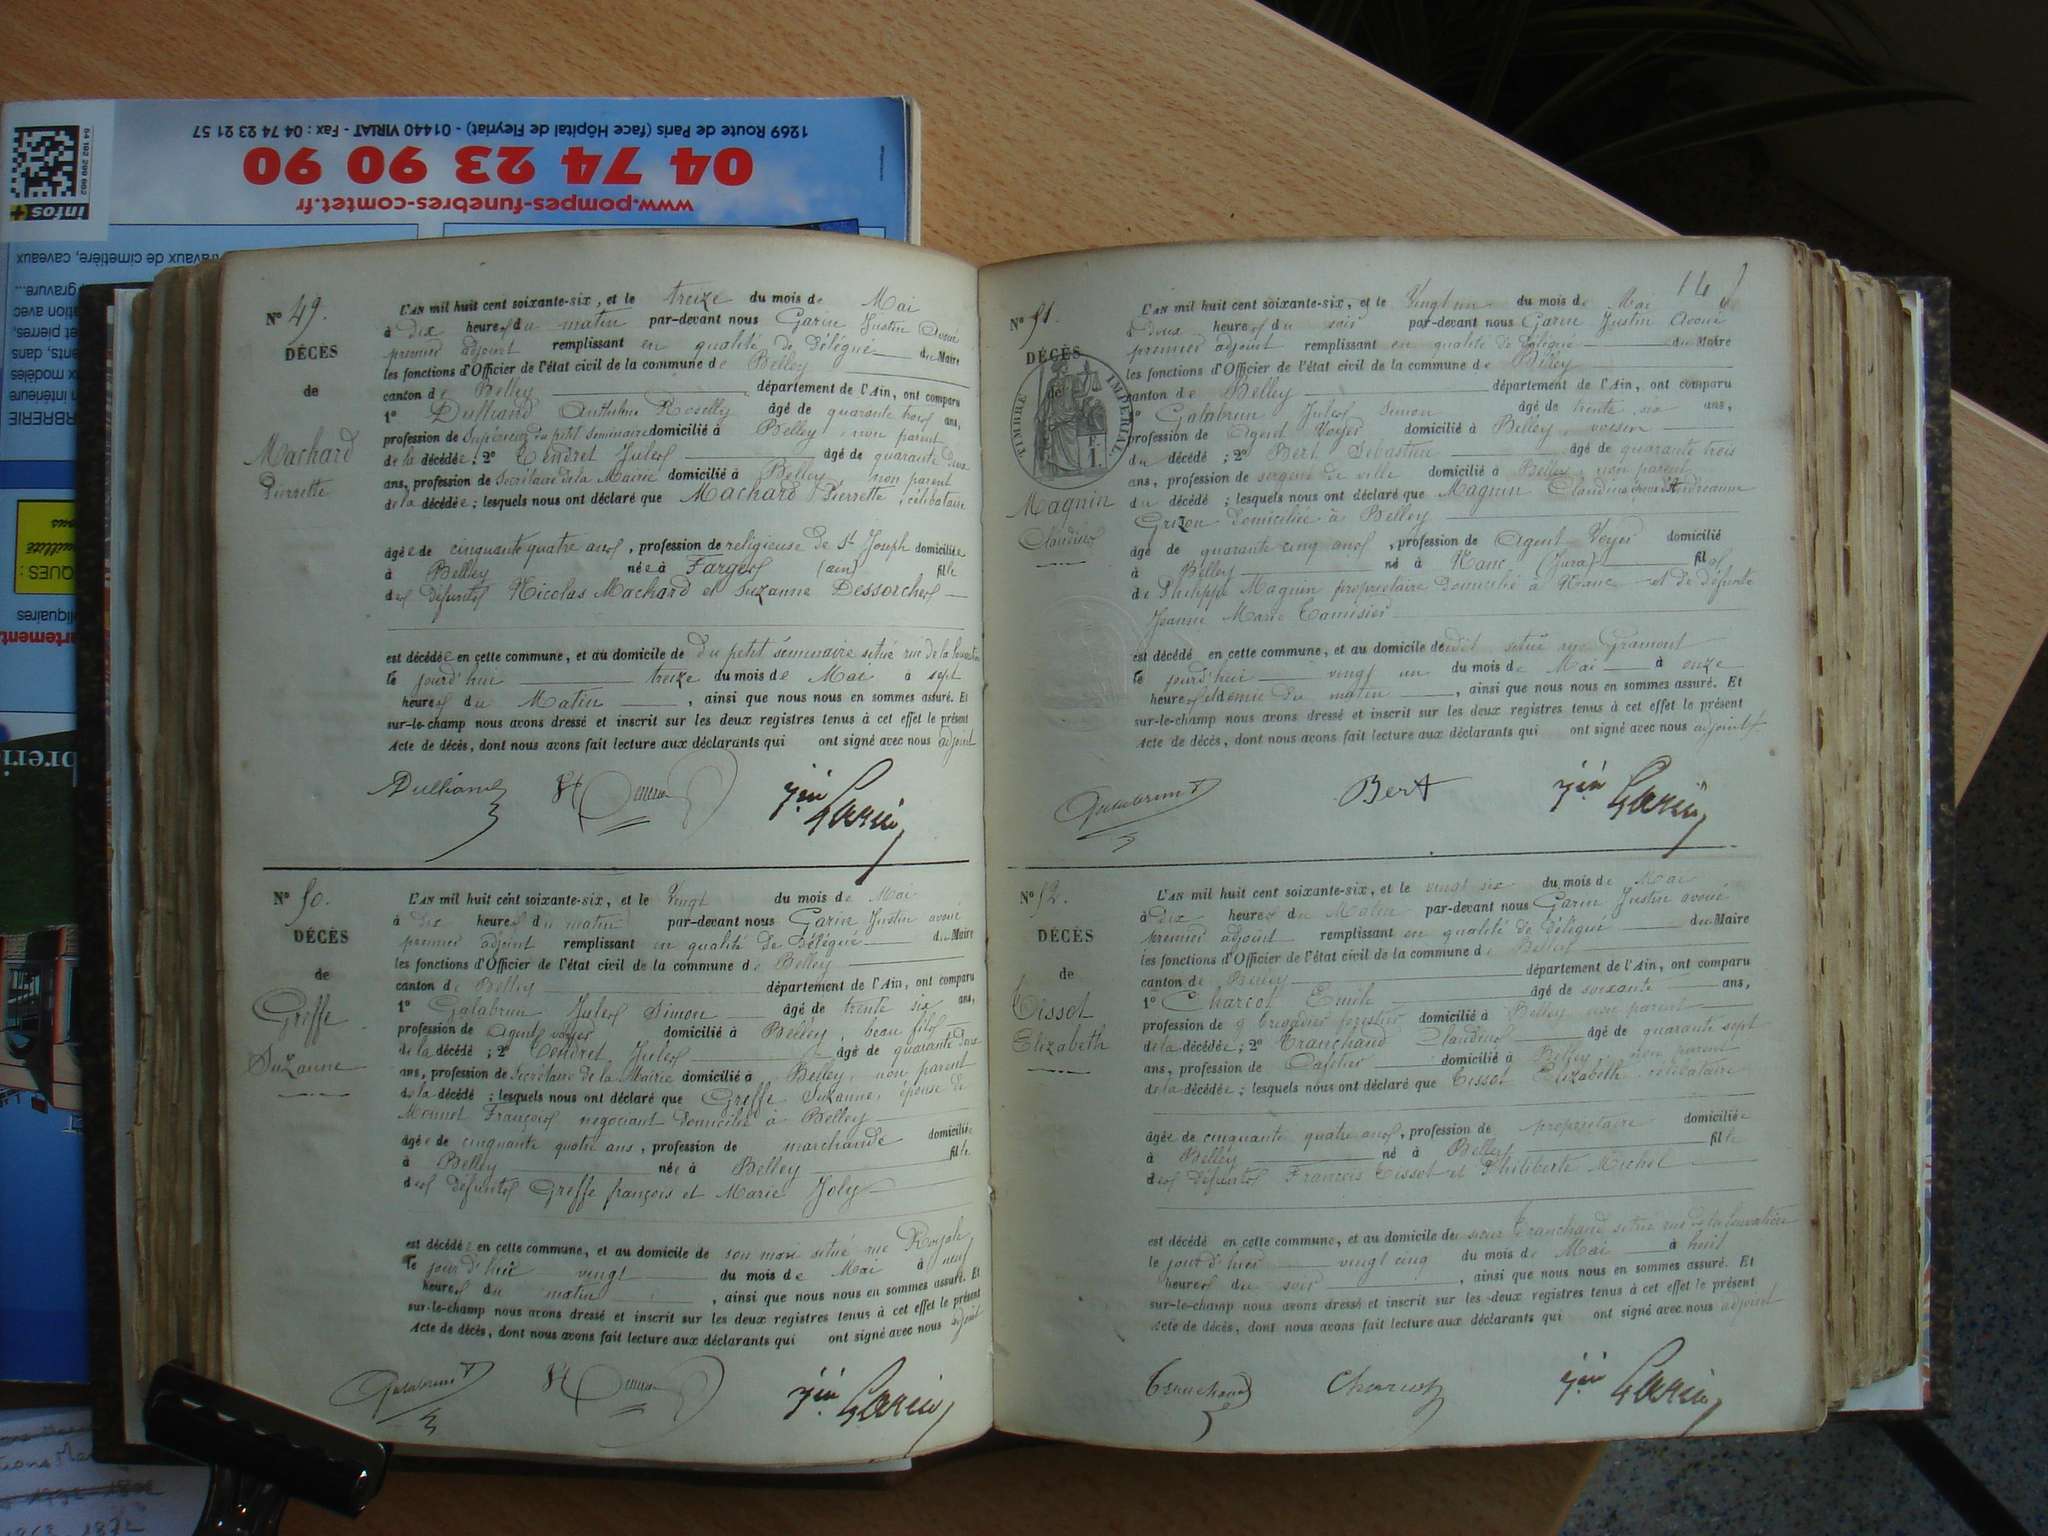 1269 Route de Paris (face Hôpital de Fleyriat) - 01440 VIRIAT - Fax : 04 74 23 21 57
04 74 23 90 90
www.pompes-funebres-comtet.fr
infos+
travaux de cimetière, caveaux
gravure...
N° 49.
DÉCÈS
de
Machard
Pierrette
L'AN mil huit cent soixante-six, et le treize du mois de Mai
à dix heures du matin par-devant nous Garin Justin Avoué
premier adjoint remplissant en qualité de Délégué du Maire
les fonctions d'Officier de l'état civil de la commune de Belley
canton de Belley département de l'Ain, ont comparu
1° Dulliand Anthelme Roselly âgé de quarante trois ans,
profession de Supérieur du petit séminaire domicilié à Belley, non parent
de la décédée ; 2° Tendret Jules âgé de quarante deux
ans, profession de Secrétaire de la Mairie domicilié à Belley, non parent
de la décédée ; lesquels nous ont déclaré que Machard Pierrette, célibataire
âgée de cinquante quatre ans, profession de religieuse de St Joseph domiciliée
à Belley née à Farges (ain) fille
des défunts Nicolas Machard et Suzanne Dessorches
est décédée en cette commune, et au domicile de du petit séminaire situé rue de la
le jourd'hui treize du mois de Mai à sept
heures du Matin, ainsi que nous nous en sommes assuré. Et
sur-le-champ nous avons dressé et inscrit sur les deux registres tenus à cet effet le présent
Acte de décès, dont nous avons fait lecture aux déclarants qui ont signé avec nous adjoint
Dulliand Jin Garin
N° 50.
DÉCÈS
de
Greffe
Suzanne
L'AN mil huit cent soixante-six, et le Vingt du mois de Mai
à dix heures du matin par-devant nous Garin Justin avoué
premier adjoint remplissant en qualité de Délégué du Maire
les fonctions d'Officier de l'état civil de la commune de Belley
canton de Belley département de l'Ain, ont comparu
1° Galabrun Jules Simon âgé de trente six ans,
profession de Agent voyer domicilié à Belley, beau fils
de la décédé ; 2° Tendret Jules âgé de quarante deux
ans, profession de Secrétaire de la Mairie domicilié à Belley, non parent
de la décédé ; lesquels nous ont déclaré que Greffe Suzanne, épouse de
Monnet François négociant domicilié à Belley
âgée de cinquante quatre ans, profession de marchande domiciliée
à Belley née à Belley fille
des défunts Greffe françois et Marie Joly
est décédée en cette commune, et au domicile de son mari situé rue Royale
le jour d'hui vingt du mois de Mai à neuf
heures du matin, ainsi que nous nous en sommes assuré. Et
sur-le-champ nous avons dressé et inscrit sur les deux registres tenus à cet effet le présent
Acte de décès, dont nous avons fait lecture aux déclarants qui ont signé avec nous adjoint
Galabrun Jin Garin
N° 51.
DÉCÈS
de
TIMBRE IMPÉRIAL
Magnin
Claudius
L'AN mil huit cent soixante-six, et le Vingt un du mois de Mai
à deux heures du soir par-devant nous Garin Justin Avoué
premier adjoint remplissant en qualité de Délégué du Maire
les fonctions d'Officier de l'état civil de la commune de Belley
canton de Belley département de l'Ain, ont comparu
1° Galabrun Jules Simon âgé de trente six ans,
profession de Agent Voyer domicilié à Belley, voisin
du décédé ; 2° Bert Sébastien âgé de quarante trois
ans, profession de sergent de ville domicilié à Belley, non parent
du décédé ; lesquels nous ont déclaré que Magnin Claudius époux d'Andréanne
Grizon domiciliée à Belley
âgé de quarante cinq ans, profession de Agent Voyer domicilié
à Belley né à Nanc (Jura) fils
de Philippe Magnin propriétaire domicilié à Nanc et de défunte
Jeanne Marie Tamisier
est décédé en cette commune, et au domicile dudit situé rue Gramont
le jourd'hui vingt un du mois de Mai à onze
heures et demie du matin, ainsi que nous nous en sommes assuré. Et
sur-le-champ nous avons dressé et inscrit sur les deux registres tenus à cet effet le présent
Acte de décès, dont nous avons fait lecture aux déclarants qui ont signé avec nous adjoint
Galabrun Bert Jin Garin
N° 52.
DÉCÈS
de
Tisset
Elizabeth
L'AN mil huit cent soixante-six, et le vingt six du mois de Mai
à dix heures du Matin par-devant nous Garin Justin avoué
premier adjoint remplissant en qualité de délégué du Maire
les fonctions d'Officier de l'état civil de la commune de Belley
canton de Belley département de l'Ain, ont comparu
1° Charcot Emile âgé de soixante ans,
profession de brigadier forestier domicilié à Belley non parent
de la décédée ; 2° Tranchand Claudius âgé de quarante sept
ans, profession de Cafetier domicilié à Belley, non parent
de la décédée ; lesquels nous ont déclaré que Tisset Elizabeth célibataire
âgée de cinquante quatre ans, profession de propriétaire domiciliée
à Belley né à Belley fille
des défunts François Tisset et Philiberte Michel
est décédé en cette commune, et au domicile du sieur Tranchand situé rue de la
le jour d'hier vingt cinq du mois de Mai à huit
heures du soir, ainsi que nous nous en sommes assuré. Et
sur-le-champ nous avons dressé et inscrit sur les deux registres tenus à cet effet le présent
Acte de décès, dont nous avons fait lecture aux déclarants qui ont signé avec nous adjoint
Tranchand Charcot Jin Garin